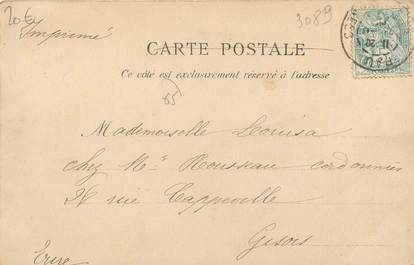 20€
3089
Imprimé
CARTE POSTALE
Ce côté est exclusivement réservé à l'adresse
85
Mademoiselle Louisa
chez Mr Rousseau cordonnier
26 rue Cappeville
Gisors
Eure